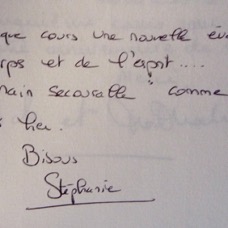 que cours une nouvelle év
rps et de l'esprit....
main secourable comme
s hier.
Bisous
Stéphanie